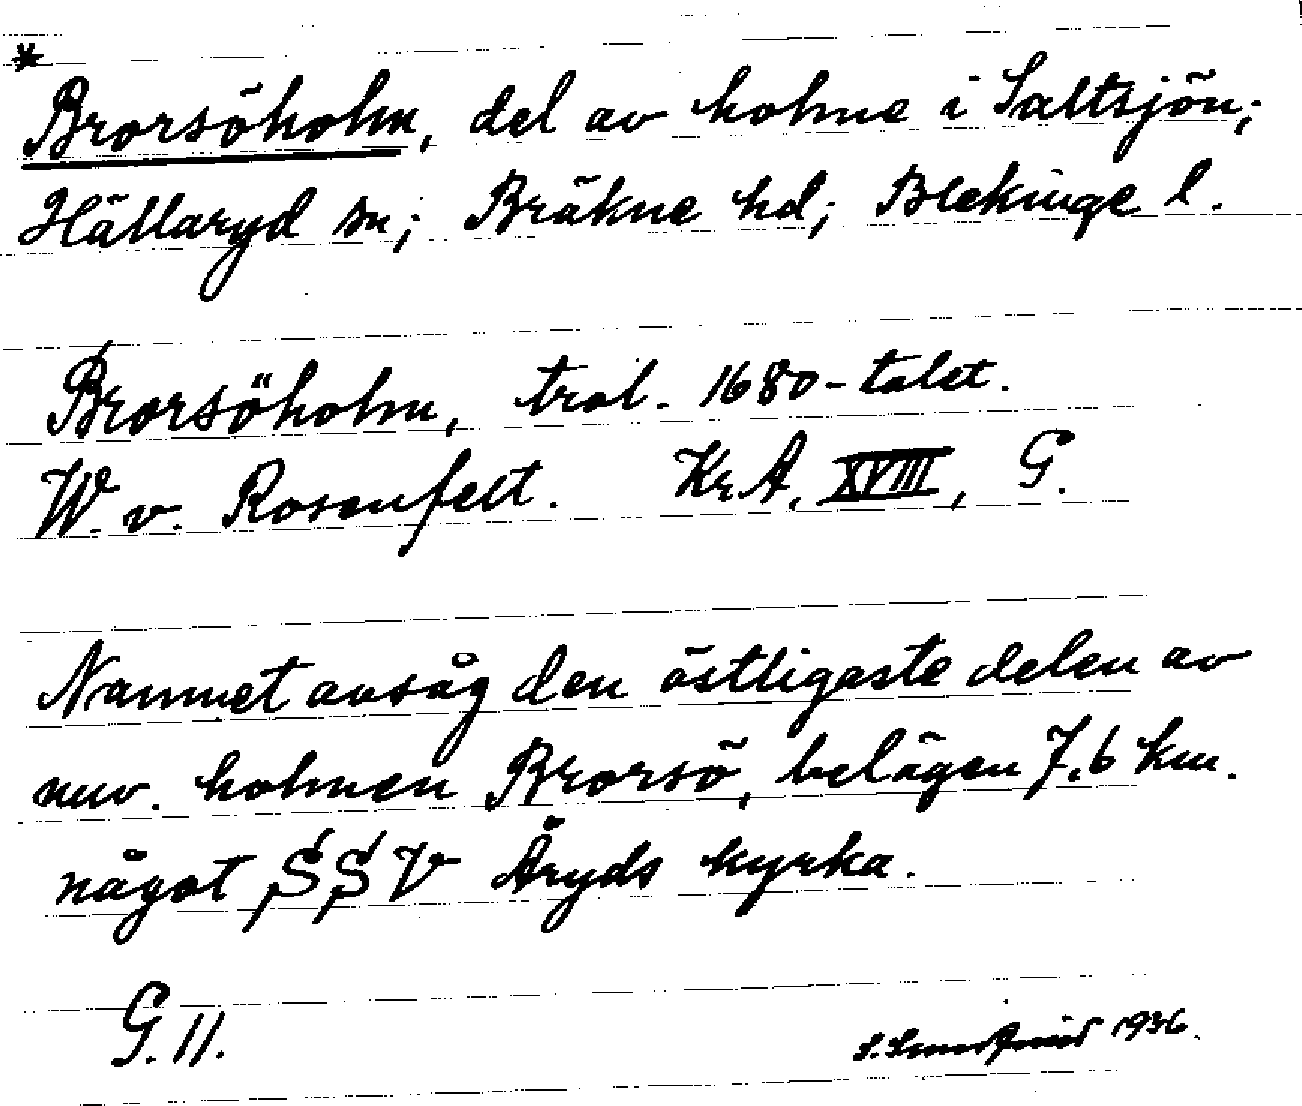 *
Brorsöholm, del av holme i Saltsjön;
Hällaryd sn; Bräkne hd; Blekinge l.
Brorsöholm, trol. 1680-talet.
W. v. Rosenfelt. KrA, XVIII, G.
Namnet avsåg den östligaste delen av
nuv. holmen Brorsö, belägen 7,6 km.
något SSV Åryds kyrka.
G. 11.
1936.